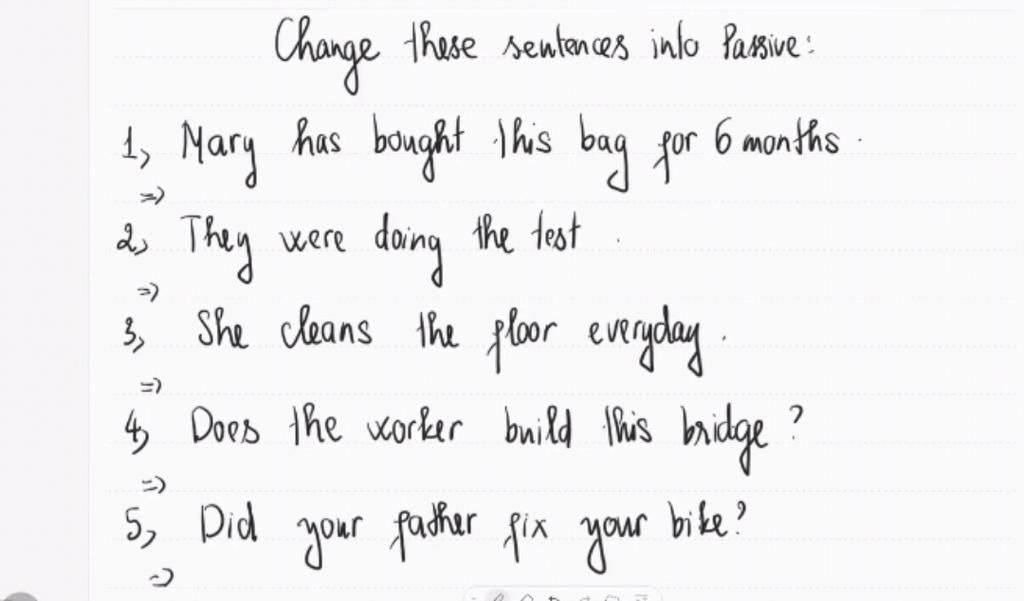 Change these sentences into Passive:
1, Mary has bought this bag for 6 months.
=>
2, They were doing the test.
=>
3, She cleans the floor everyday.
=>
4, Does the worker build this bridge?
=>
5, Did your father fix your bike?
=>